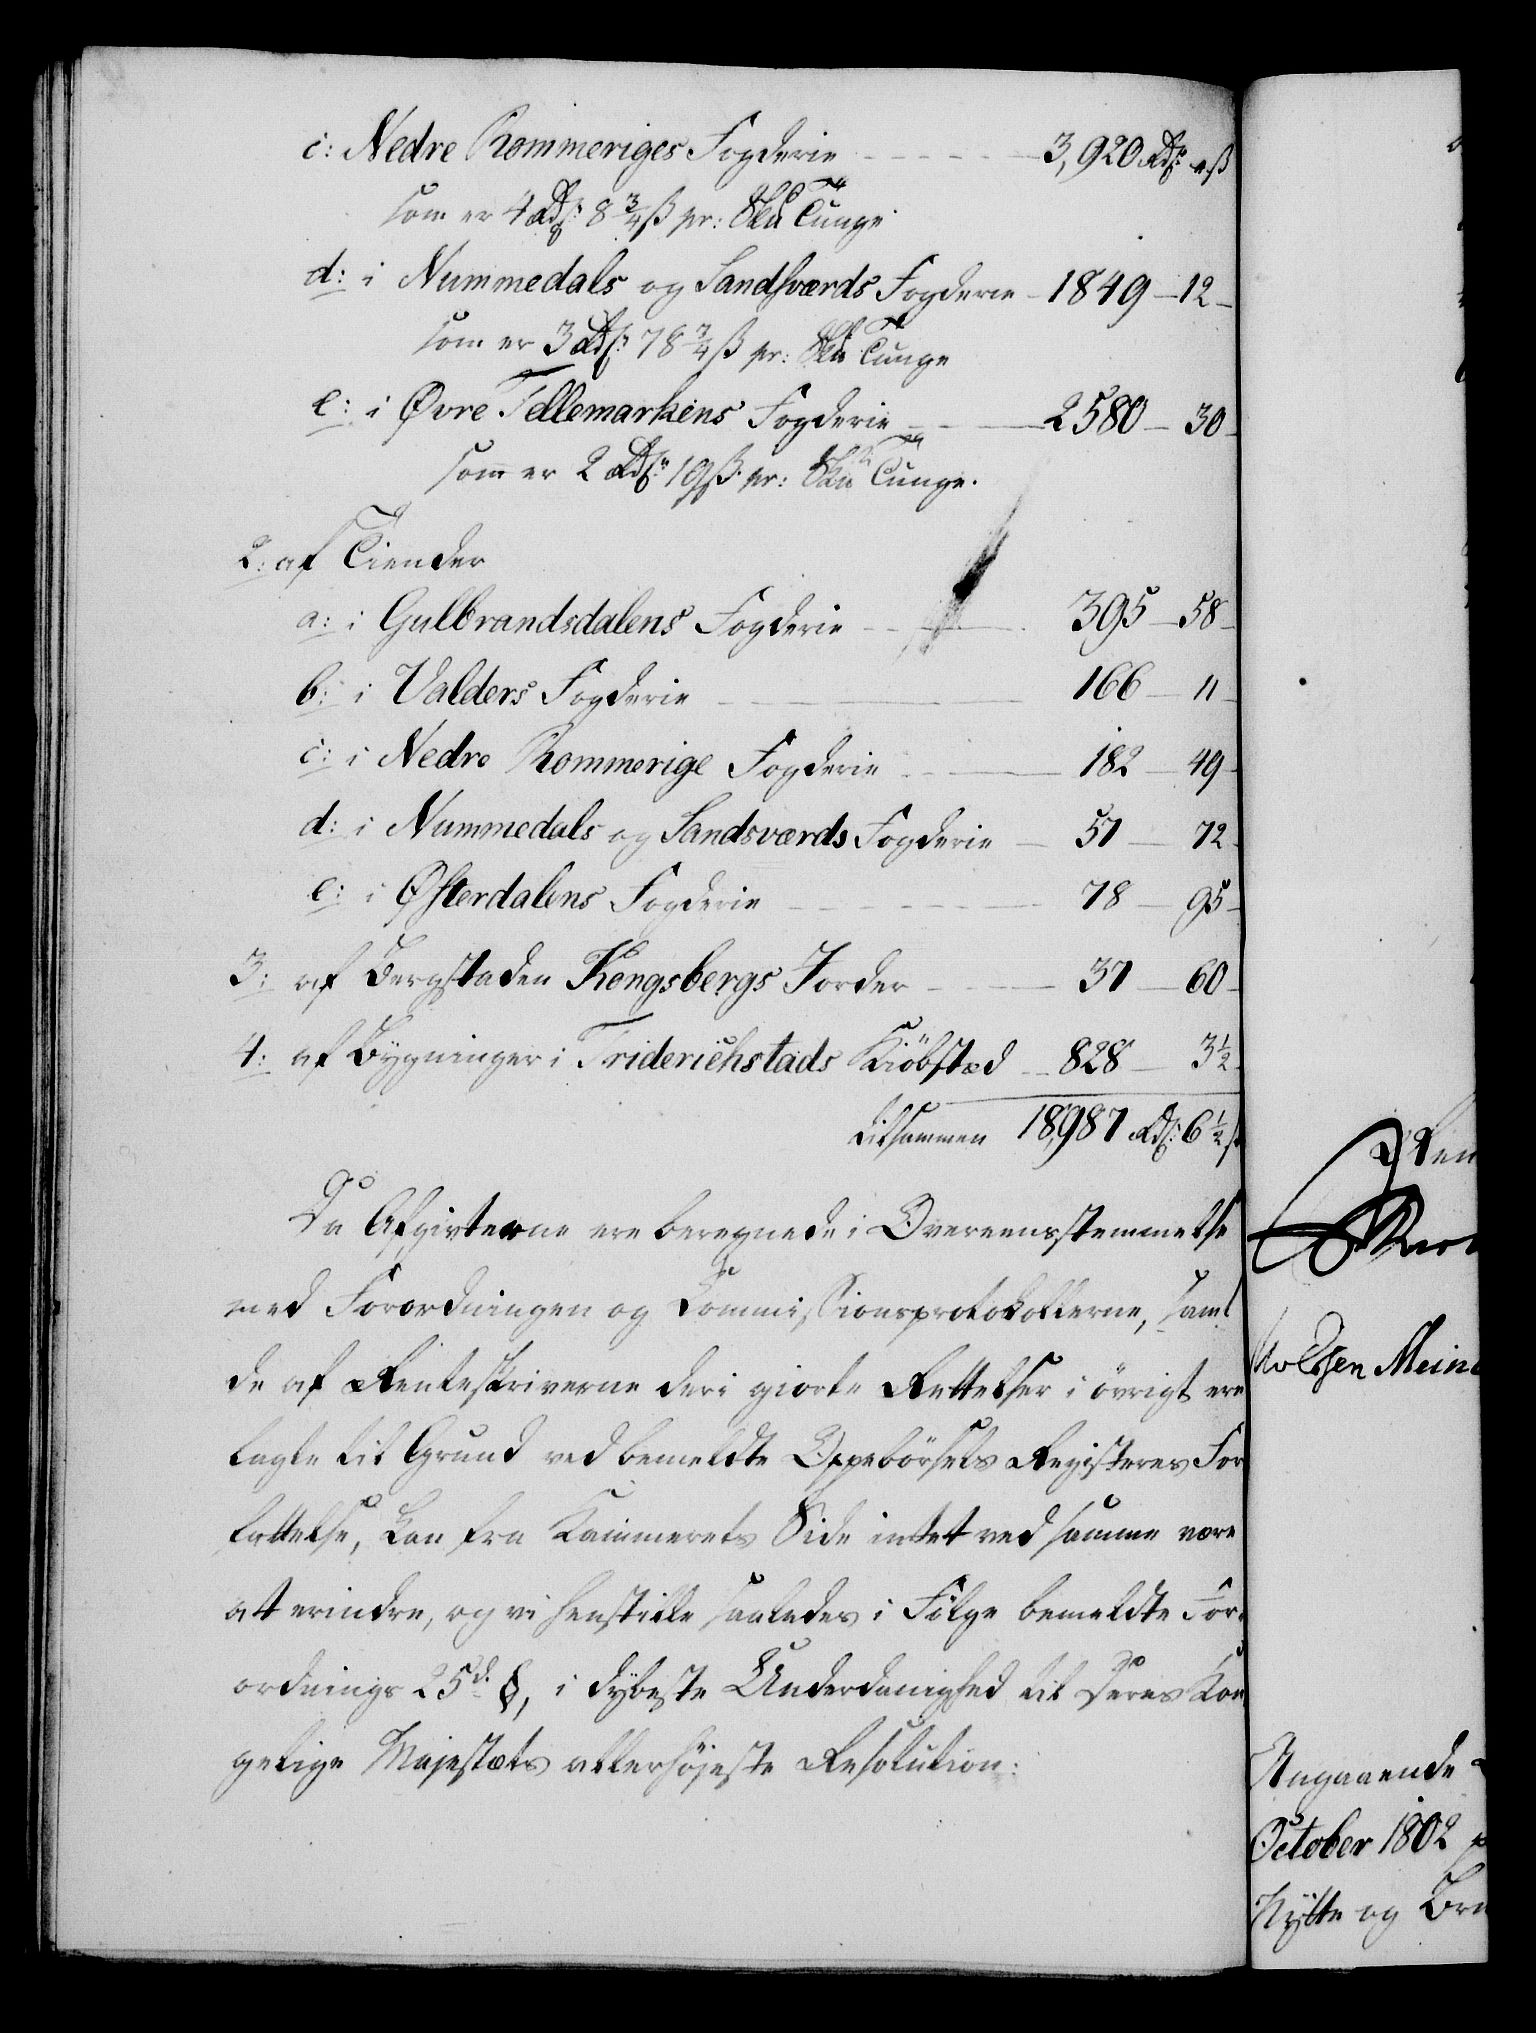 c: Nedre Rommeriges Fogderie - - - - - 3,920 Rdr. " ß
som er 4 Rdr. 8 3/4 ß pr: Skd Tunge
d: i Nummedals og Sandsværds Fogderie - 1849 - 12 -
som er 3 Rdr. 78 3/4 ß pr: Skd Tunge
e: i Øvre Tellemarkens Fogderie - - - 2580 - 30 -
som er 2 Rdr. 19 ß pr: Skd Tunge.
2: af Tiender
a: i Gulbrandsdalens Fogderie - - - 395 - 58 -
b: i Valders Fogderie - - - 166 - 11 -
c: i Nedre Rommerige Fogderie - - - 182 - 49 -
d: i Nummedals og Sandsværds Fogderie - 57 - 72 -
e: i Østerdalens Fogderie - - - - - 78 - 95 -
3: af Bergstaden Kongsbergs Jorder - - - 37 - 60 -
4: af Bygninger i Friderichstads Kiöbsted - 828 - 3 1/2
tilsammen 18,987 Rdr. 6 1/2 ß
Da Afgivterne ere beregnede i Overeensstemmelse
med Forordningen og Commissionsprotokollerne, samt
de af Renteskriverne deri giorte Rettelser i övrigt ere
lagte til Grund ved bemeldte Oppebörsels Registeres For
fattelse, kan fra Kammerets Side intet ved samme være
at erindre, og vi henstille saaledes i Fölge bemeldte For-
ordnings 25d. §, i dybeste Underdanighed til Deres Kon
gelige Majestæts allerhöjeste Resolution:
Meine
Angaaende
October 1802
og